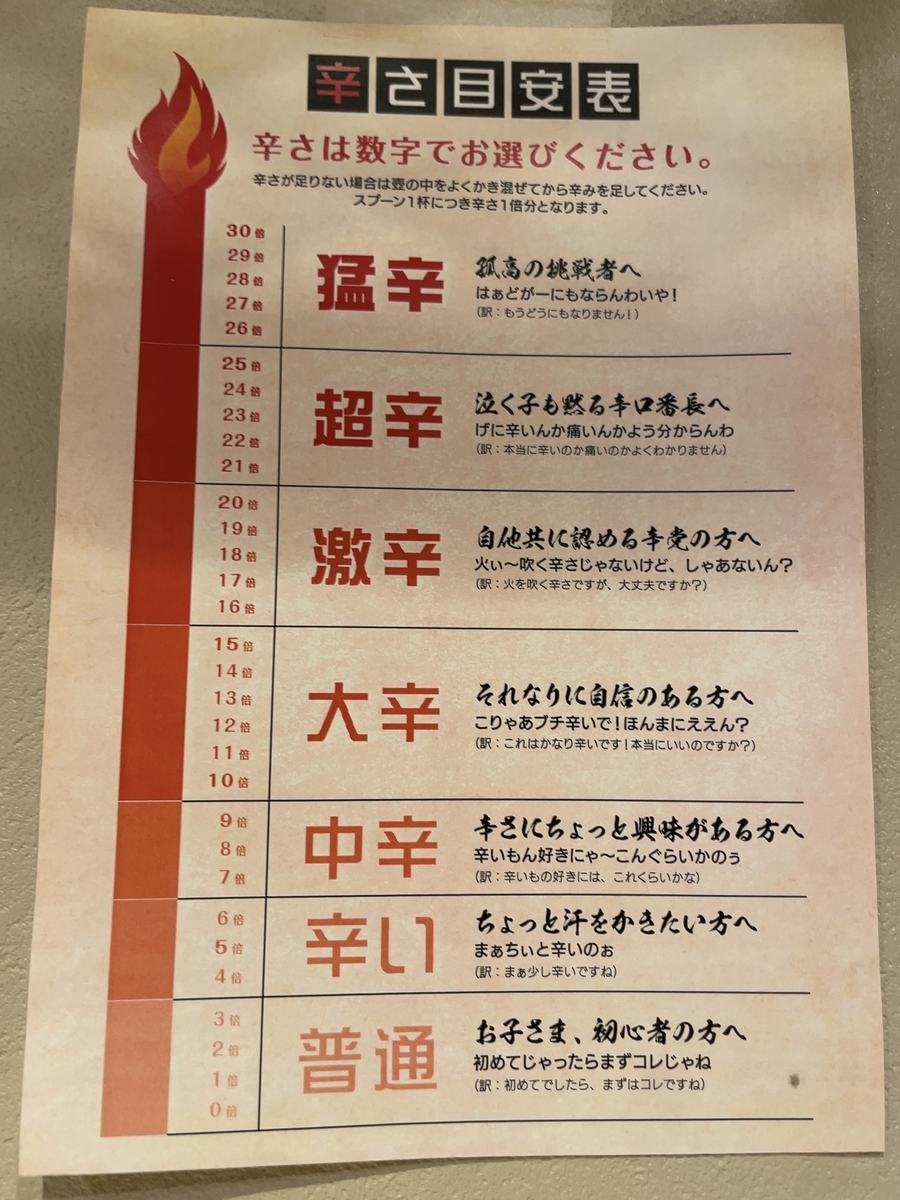 辛さ目安表
辛さは数字でお選びください。
辛さが足りない場合は壺の中をよくかき混ぜてから辛みを足してください。
スプーン1杯につき辛さ1倍分となります。
30倍
29倍
28倍
27倍
26倍
猛辛
孤高の挑戦者へ
はぁどがーにもならんわいや！
（訳：もうどうにもなりません！）
25倍
24倍
23倍
22倍
21倍
超辛
泣く子も黙る辛口番長へ
げに辛いんか痛いんかよう分からんわ
（訳：本当に辛いのか痛いのかよくわかりません）
20倍
19倍
18倍
17倍
16倍
激辛
自他共に認める辛党の方へ
火ぃ〜吹く辛さじゃないけど、しゃあないん？
（訳：火を吹く辛さですが、大丈夫ですか？）
15倍
14倍
13倍
12倍
11倍
10倍
大辛
それなりに自信のある方へ
こりゃあブチ辛いで！ほんまにええん？
（訳：これはかなり辛いです！本当にいいのですか？）
9倍
8倍
7倍
中辛
辛さにちょっと興味がある方へ
辛いもん好きにゃ〜こんぐらいかのぅ
（訳：辛いもの好きには、これくらいかな）
6倍
5倍
4倍
辛い
ちょっと汗をかきたい方へ
まぁちぃと辛いのぉ
（訳：まぁ少し辛いですね）
3倍
2倍
1倍
0倍
普通
お子さま、初心者の方へ
初めてじゃったらまずコレじゃね
（訳：初めてでしたら、まずはコレですね）